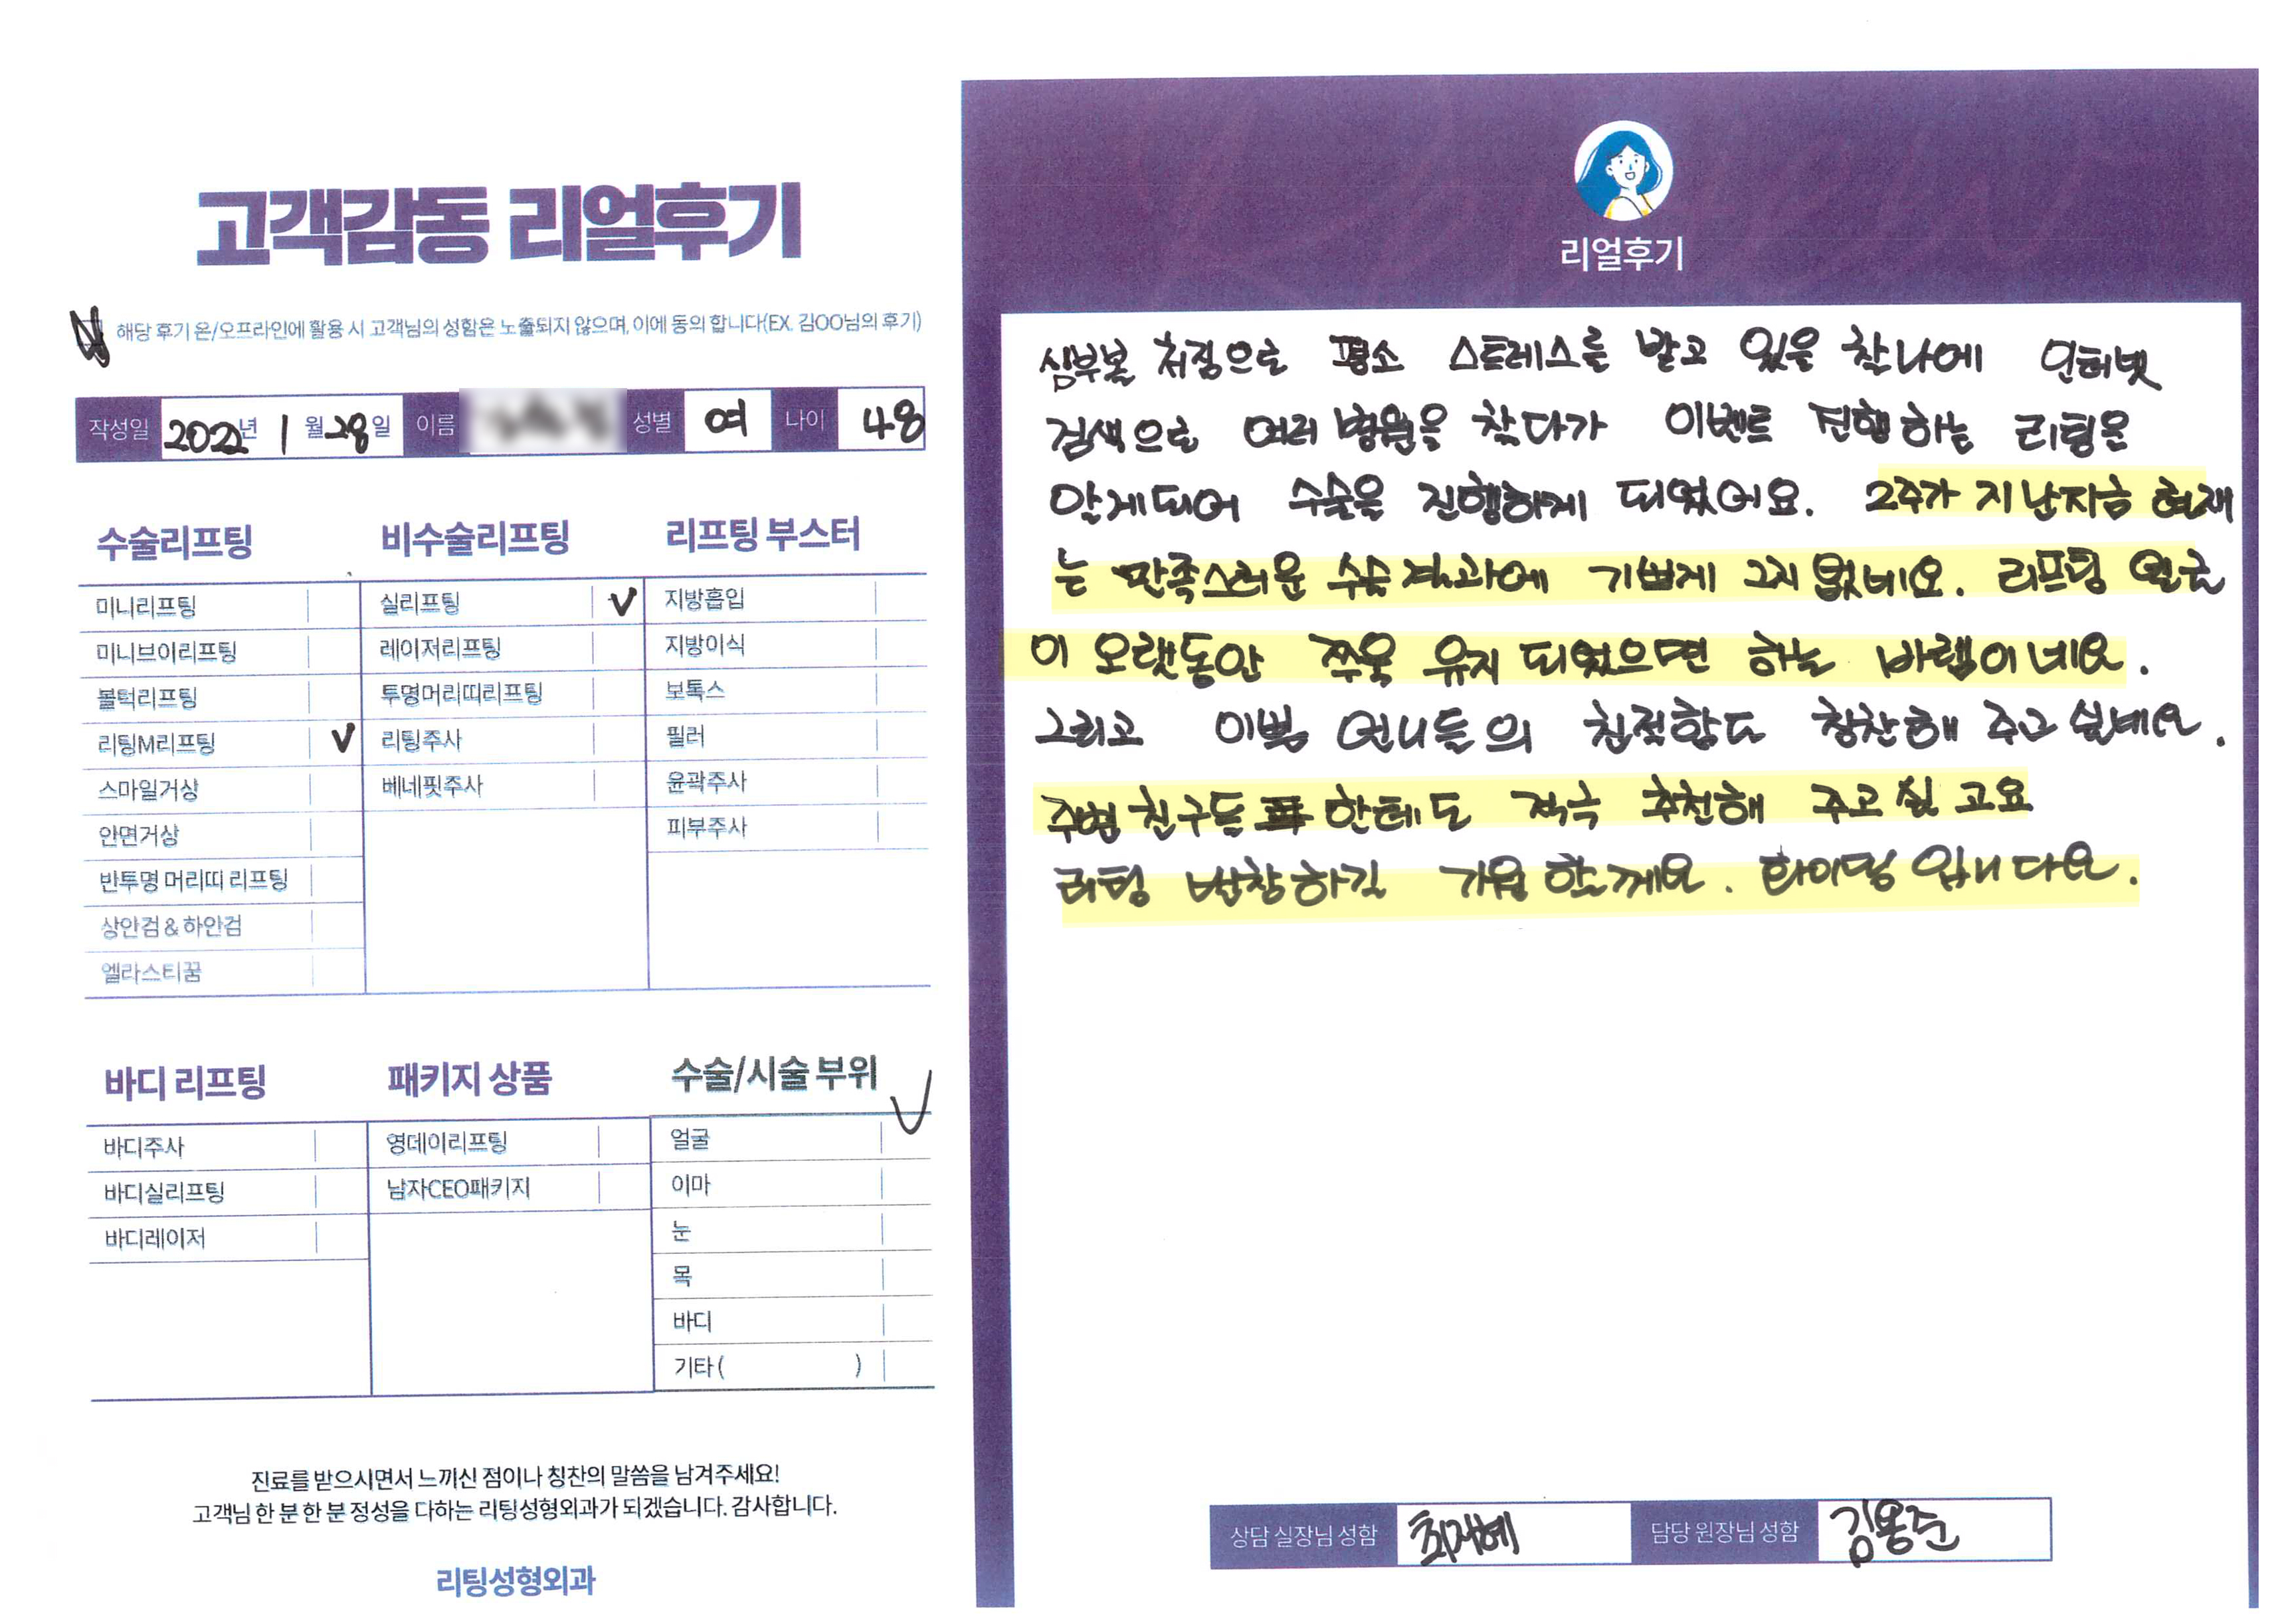 고객감동 리얼후기
해당 후기 온/오프라인에 활용 시 고객님의 성함은 노출되지 않으며, 이에 동의 합니다(EX. 김OO님의 후기)
작성일 2022년 1월 28일 이름 성별 여 나이 48
수술리프팅
미니리프팅
미니브이리프팅
볼턱리프팅
리팅M리프팅 V
스마일거상
안면거상
반투명 머리띠 리프팅
상안검 & 하안검
엘라스티꿈
비수술리프팅
실리프팅 V
레이저리프팅
투명머리띠리프팅
리팅주사
베네핏주사
리프팅 부스터
지방흡입
지방이식
보톡스
필러
윤곽주사
피부주사
바디 리프팅
바디주사
바디실리프팅
바디레이저
패키지 상품
영데이리프팅
남자CEO패키지
수술/시술 부위
얼굴 V
이마
눈
목
바디
기타 ( )
진료를 받으시면서 느끼신 점이나 칭찬의 말씀을 남겨주세요!
고객님 한 분 한 분 정성을 다하는 리팅성형외과가 되겠습니다. 감사합니다.
리팅성형외과
리얼후기
심부볼 처짐으로 평소 스트레스를 받고 있을 찰나에 인터넷
검색으로 여러 병원을 찾다가 이벤트 진행하는 리팅을
알게되어 수술을 진행하게 되었어요. 2주가 지난지금 현재
는 만족스러운 수술결과에 기쁘게 그지 없네요. 리프팅 얼굴
이 오랫동안 쭈욱 유지 되었으면 하는 바램이네요.
그리고 이쁨 언니들의 친절함도 칭찬해 주고 싶네요.
주변 친구들 한테도 적극 추천해 주고 싶고요
리팅 번창하길 기원 할께요. 화이팅 입니다요.
상담 실장님 성함 최지혜 담당 원장님 성함 김용준